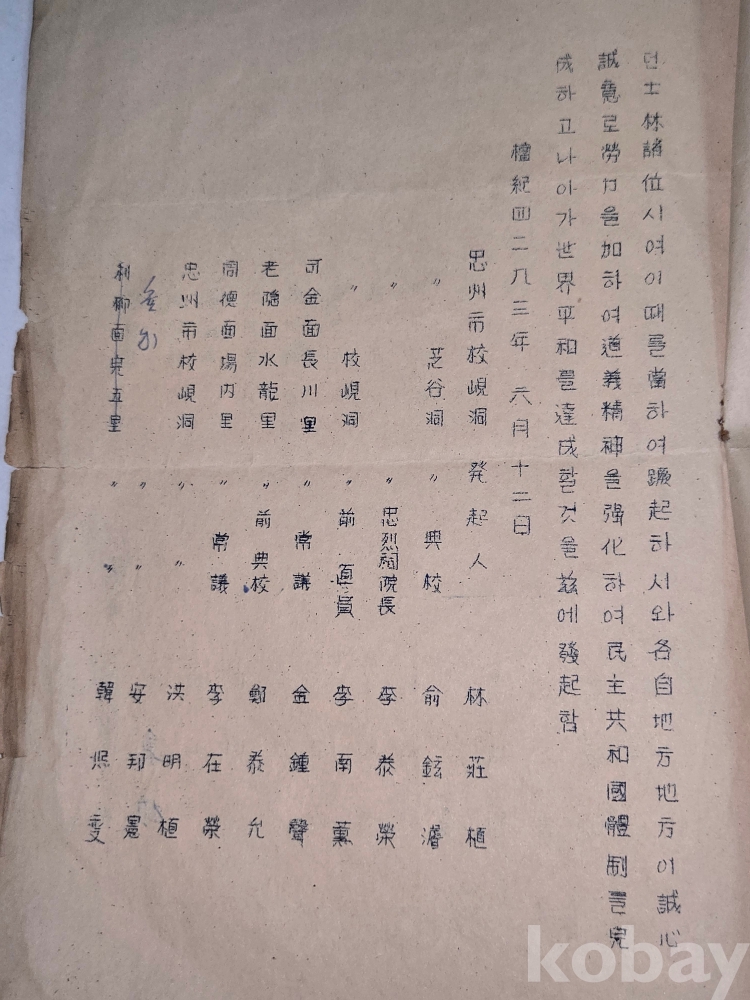 던士林諸位시여이때를當하여蹶起하서와各自地方地方이誠心
誠意로勞力을加하여道義精神을强化하여民主共和國體制를完
成하고나아가世界平和를達成할것을玆에發起함
檀紀四二八三年 六月十二日
忠州市校峴洞 発起人 林莊植
〃 芝谷洞 〃 典校 兪鉉濬
忠烈祠院長 李泰榮
〃 校峴洞 〃 前直員 李南薰
可金面長川里 〃 常議 金鍾聲
老隱面水龍里 〃 前典校 鄭泰允
周德面場內里 〃 常議 李在榮
忠州市校峴洞 〃 〃 洪明植
〃 安邦憲
利柳面完五里 〃 〃 韓熙
kobay